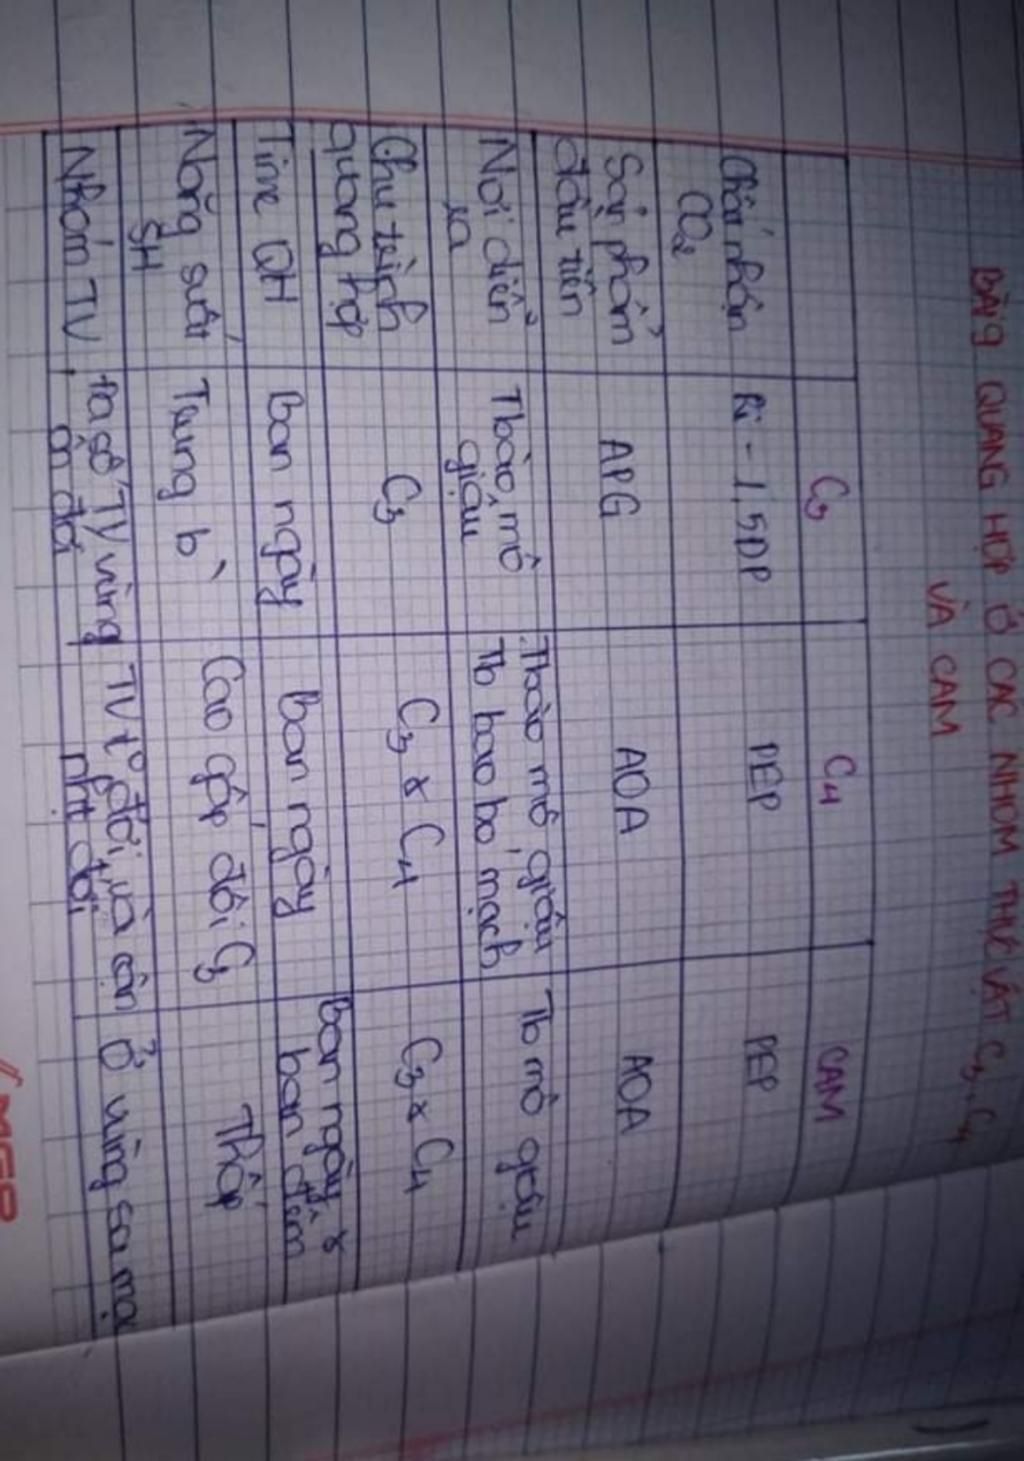 BÀI 9 QUANG HỢP Ở CÁC NHÓM THỰC VẬT C3, C4
VÀ CAM
C3 C4 CAM
Chất nhận Ri - 1,5DP PEP PEP
CO2
Sản phẩm APG AOA AOA
đầu tiên
Nơi diễn Tbào mô Tbào mô giậu Tb mô giậu
ra giậu Tb bao bó mạch
Chu trình C3 C3 & C4 C3 & C4
quang hợp
Time QH Ban ngày Ban ngày Ban ngày &
ban đêm
Năng suất Trung b̀ Cao gấp đôi C3 Thấp
SH
Nhóm TV Đa số TV vùng TV to đới và cận Ở vùng sa mạc
ôn đới nht đới